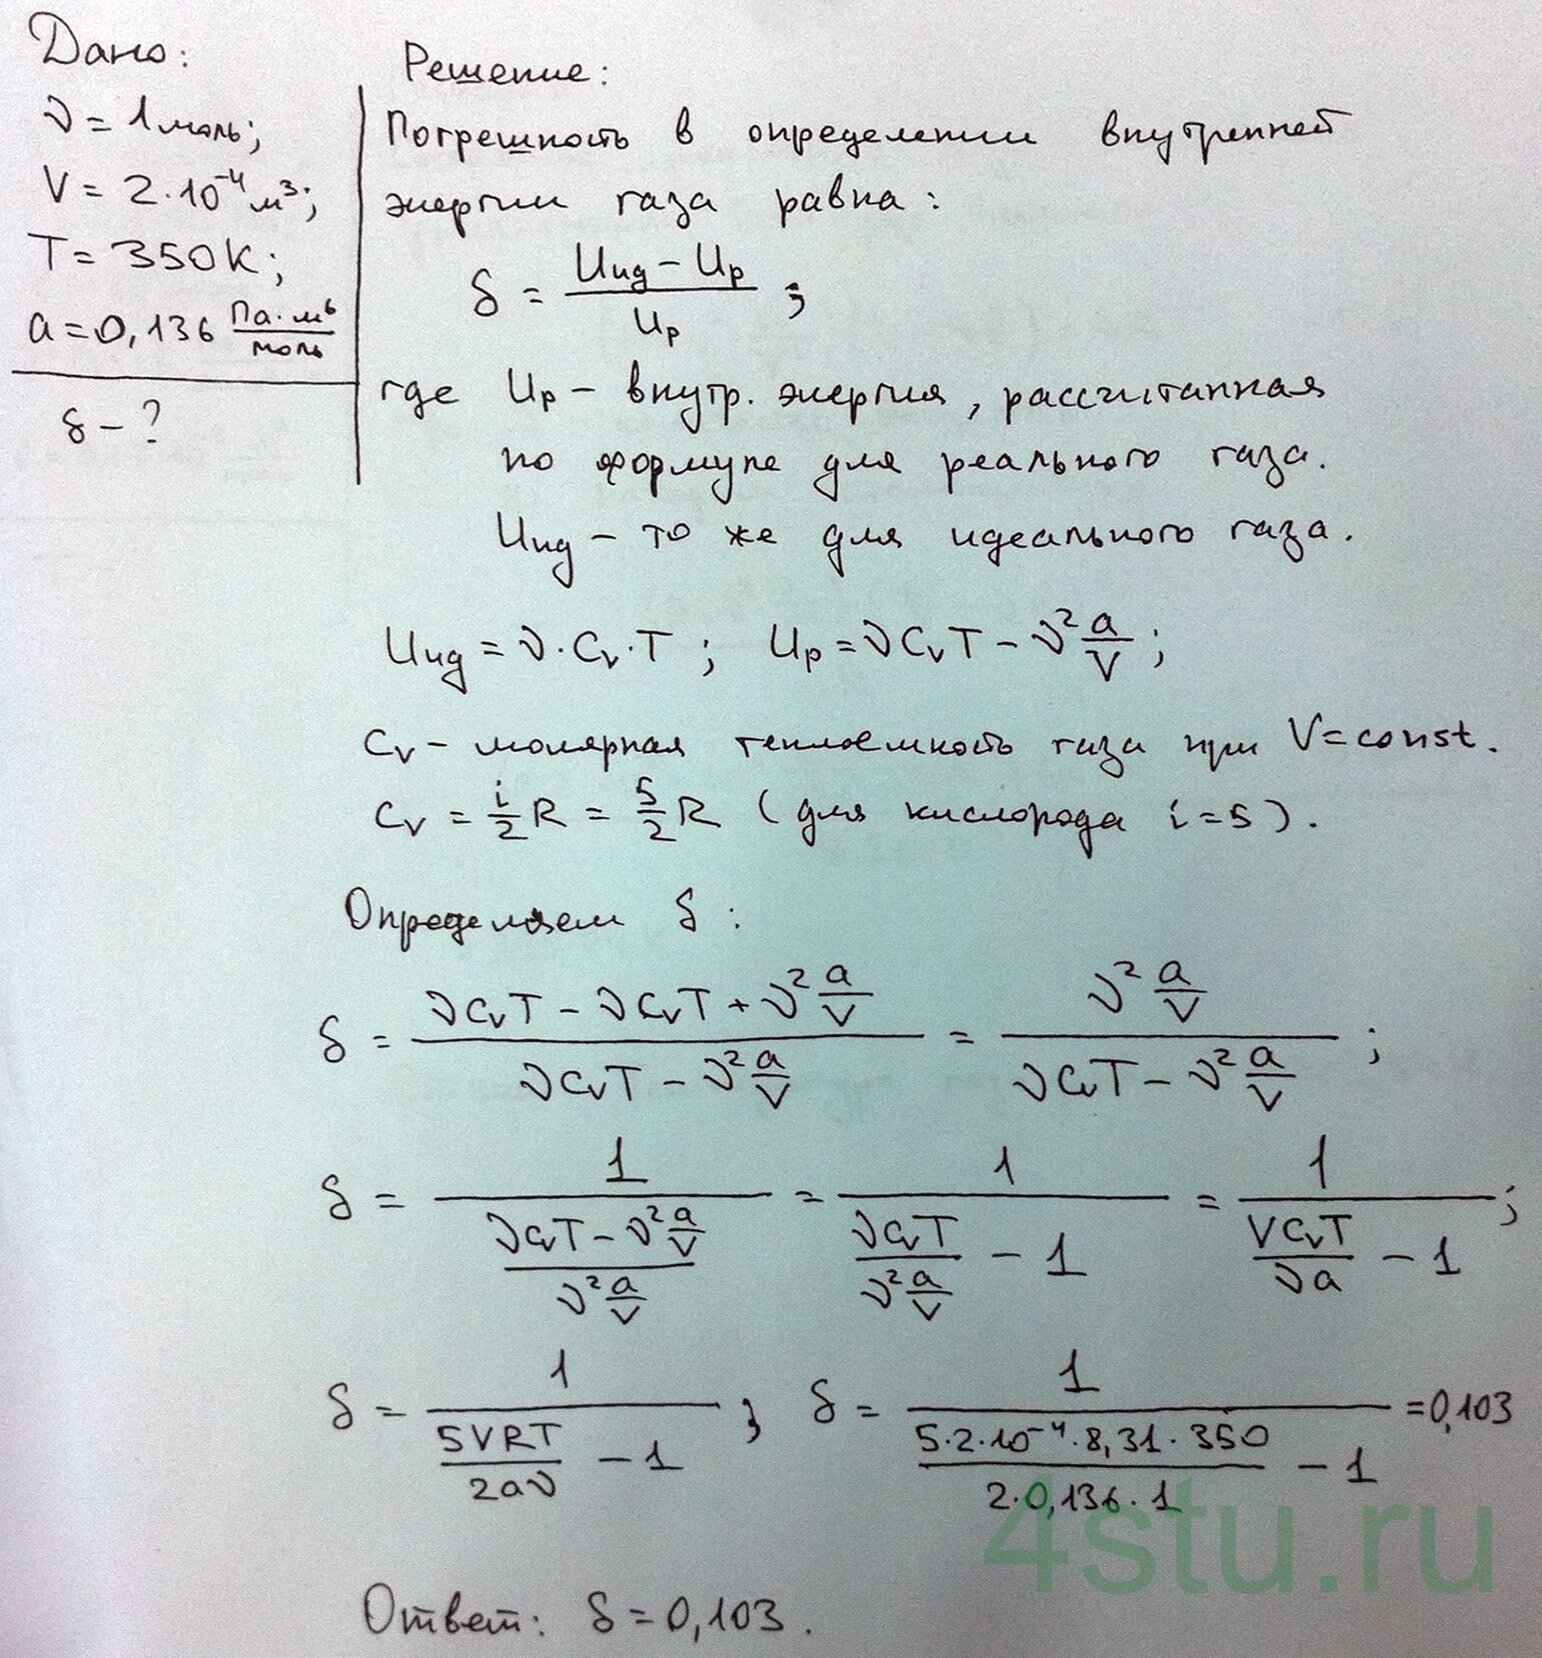 Дано:
ν = 1 моль;
V = 2·10⁻⁴ м³;
T = 350 К;
a = 0,136 Па·м⁶/моль
δ - ?
Решение:
Погрешность в определении внутренней
энергии газа равна:
δ = (Uид - Uр)/Uр ;
где Uр - внутр. энергия, рассчитанная
по формуле для реального газа.
Uид - то же для идеального газа.
Uид = ν·Cv·T ; Uр = νCvT - ν² a/V ;
Cv - молярная теплоёмкость газа при V=const.
Cv = i/2 R = 5/2 R (для кислорода i=5).
Определяем δ :
δ = (νCvT - νCvT + ν² a/V)/(νCvT - ν² a/V) = (ν² a/V)/(νCvT - ν² a/V) ;
δ = 1/((νCvT - ν² a/V)/(ν² a/V)) = 1/((νCvT)/(ν² a/V) - 1) = 1/(VCvT/νa - 1) ;
δ = 1/(5VRT/2aν - 1) ; δ = 1/((5·2·10⁻⁴·8,31·350)/(2·0,136·1) - 1) = 0,103
4stu.ru
Ответ: δ = 0,103.